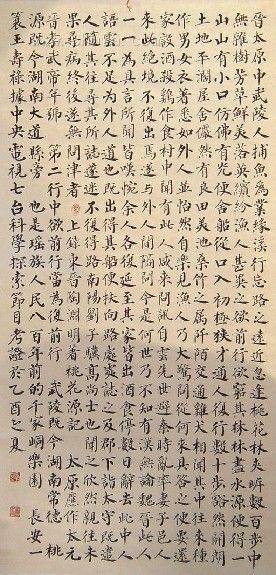 晉太原中武陵人捕魚為業緣溪行忘路之遠近忽逢桃花林夾岸數百步中
無雜樹芳草鮮美落英繽紛漁人甚異之欲前行欲窮其林林盡水源便得一
山山有小口仿佛有光便舍船從口入初極狹才通人復行數十步豁然開朗
土地平曠屋舍儼然有良田美池桑竹之屬阡陌交通雞犬相聞其中往來種
作男女衣著悉如外人並怡然自樂見漁人乃大驚問從何來具答之便要還
家設酒殺雞作食村中聞有此人咸來問訊自雲先世避秦時亂率妻子邑人
來此絕境不復出焉遂與外人間隔問今是何世乃不知有漢無論魏晉此人
一一為具言所聞皆嘆惋余人各復延至其家皆出酒食停數日辭去此中人
語雲不足為外人道也既出得其船便扶向路處處誌之及郡下詣太守遣
人隨其往尋其所誌遂迷不復得路南陽劉子驥高尚士也聞之欣然親往未
果尋病終後遂無問津者 上錄東晉陶淵明著桃花源記 太原應作太元
晉孝武帝年號 第二行中欲前行當為復前行 武陵既今湖南常德 桃
源既今湖南大道縣旁 也是瑤族人民八百年前的千家峒樂園 長安一
叟王壽祿據中央電視七台科學探索節目考證於乙酉之夏